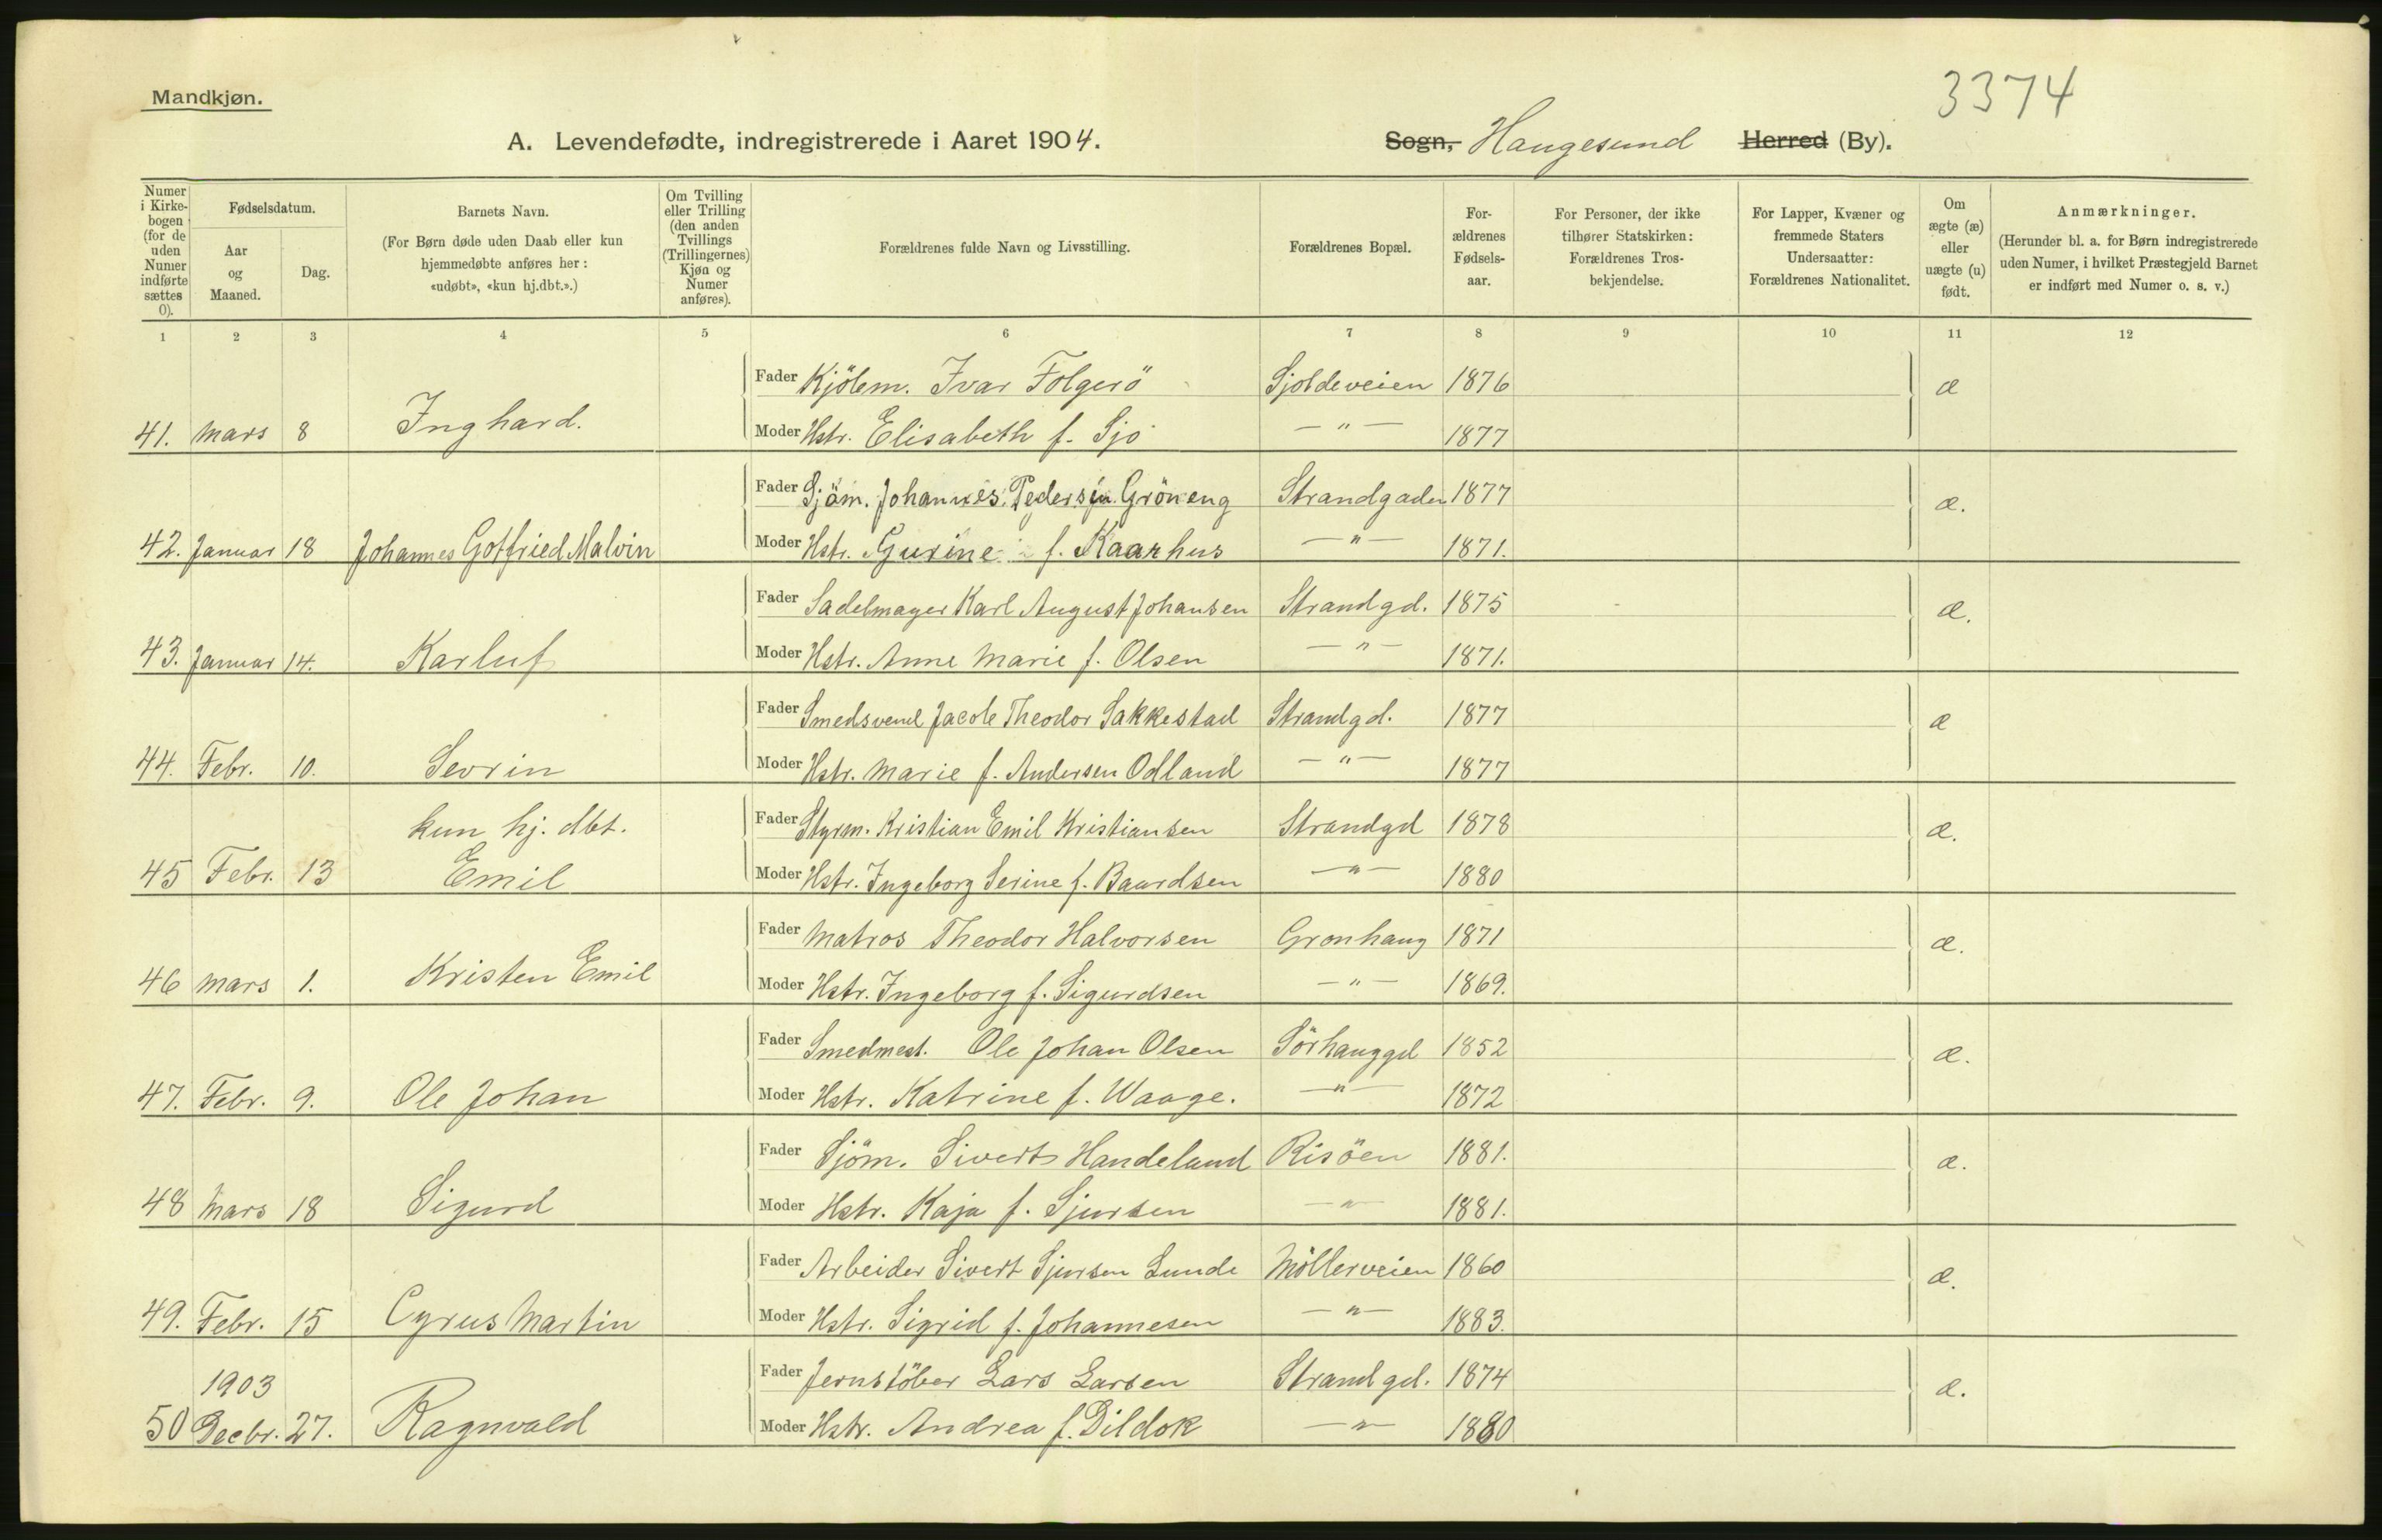 3374
Mandkjøn.
A. Levendefødte, indregistrerede i Aaret 1904. Sogn, Haugesund Herred (By).
Numer i Kirkebogen (for de uden Numer indførte sættes 0).
Fødselsdatum.
Aar og Maaned.
Dag.
Barnets Navn.
(For Børn døde uden Daab eller kun hjemmedøbte anføres her: «udøbt», «kun hj.dbt.».)
Om Tvilling eller Trilling (den anden Tvillings (Trillingernes) Kjøn og Numer anføres).
Forældrenes fulde Navn og Livsstilling.
Forældrenes Bopæl.
For-ældrenes Fødsels-aar.
For Personer, der ikke tilhører Statskirken: Forældrenes Tros-bekjendelse.
For Lapper, Kvæner og fremmede Staters Undersaatter: Forældrenes Nationalitet.
Om ægte (æ) eller uægte (u) født.
Anmærkninger.
(Herunder bl. a. for Børn indregistrerede uden Numer, i hvilket Præstegjeld Barnet er indført med Numer o. s. v.)
1 2 3 4 5 6 7 8 9 10 11 12
Fader Kjölem. Ivar Folgerö Sjoldeveien 1876 æ
41. Mars 8 Inghard. Moder Hstr. Elisabeth f. Sjo — " — 1877
Fader Sjöm. Johannes Pedersen Gröneng Strandgaden 1877 æ.
42. Januar 18 Johannes Gotfried Malvin Moder Hstr. Gurine f. Kaarhus — " — 1871.
Fader Sadelmager Karl August Johansen Strandgd. 1875 æ.
43. Januar 14. Karluf Moder Hstr. Anne Marie f. Olsen — " — 1871.
Fader Smedsvend Jacob Theodor Sakkestad Strandgd. 1877 æ
44. Febr. 10. Sevrin Moder Hstr. Marie f. Andersen Odland — " — 1877
kun hj. dbt. Fader Styrm. Kristian Emil Kristiansen Strandgd 1878 æ.
45 Febr. 13 Emil Moder Hstr. Ingeborg Serine f. Baardsen — " — 1880
Fader Matros Theodor Halvorsen Gronhaug 1871 æ.
46 Mars 1. Kristen Emil Moder Hstr. Ingeborg f. Sigurdsen — " — 1869.
Fader Smedmest. Ole Johan Olsen Sörhauggd 1852 æ.
47. Febr. 9. Ole Johan Moder Hstr. Katrine f. Waage. — " — 1872
Fader Sjöm. Siverts Handeland Risöen 1881. æ.
48 Mars 18 Sigurd Moder Hstr. Kaja f. Sjursen — " — 1881.
Fader Arbeider Sivert Sjursen Lunde Möllerveien 1860 æ.
49. Febr. 15 Cyrus Martin Moder Hstr. Sigrid f. Johannesen — " — 1883.
1903 Fader Jernstöber Lars Larsen Strandgd. 1874 æ.
50 Decbr. 27. Ragnvald Moder Hstr. Andrea f. Dildok — " — 1880